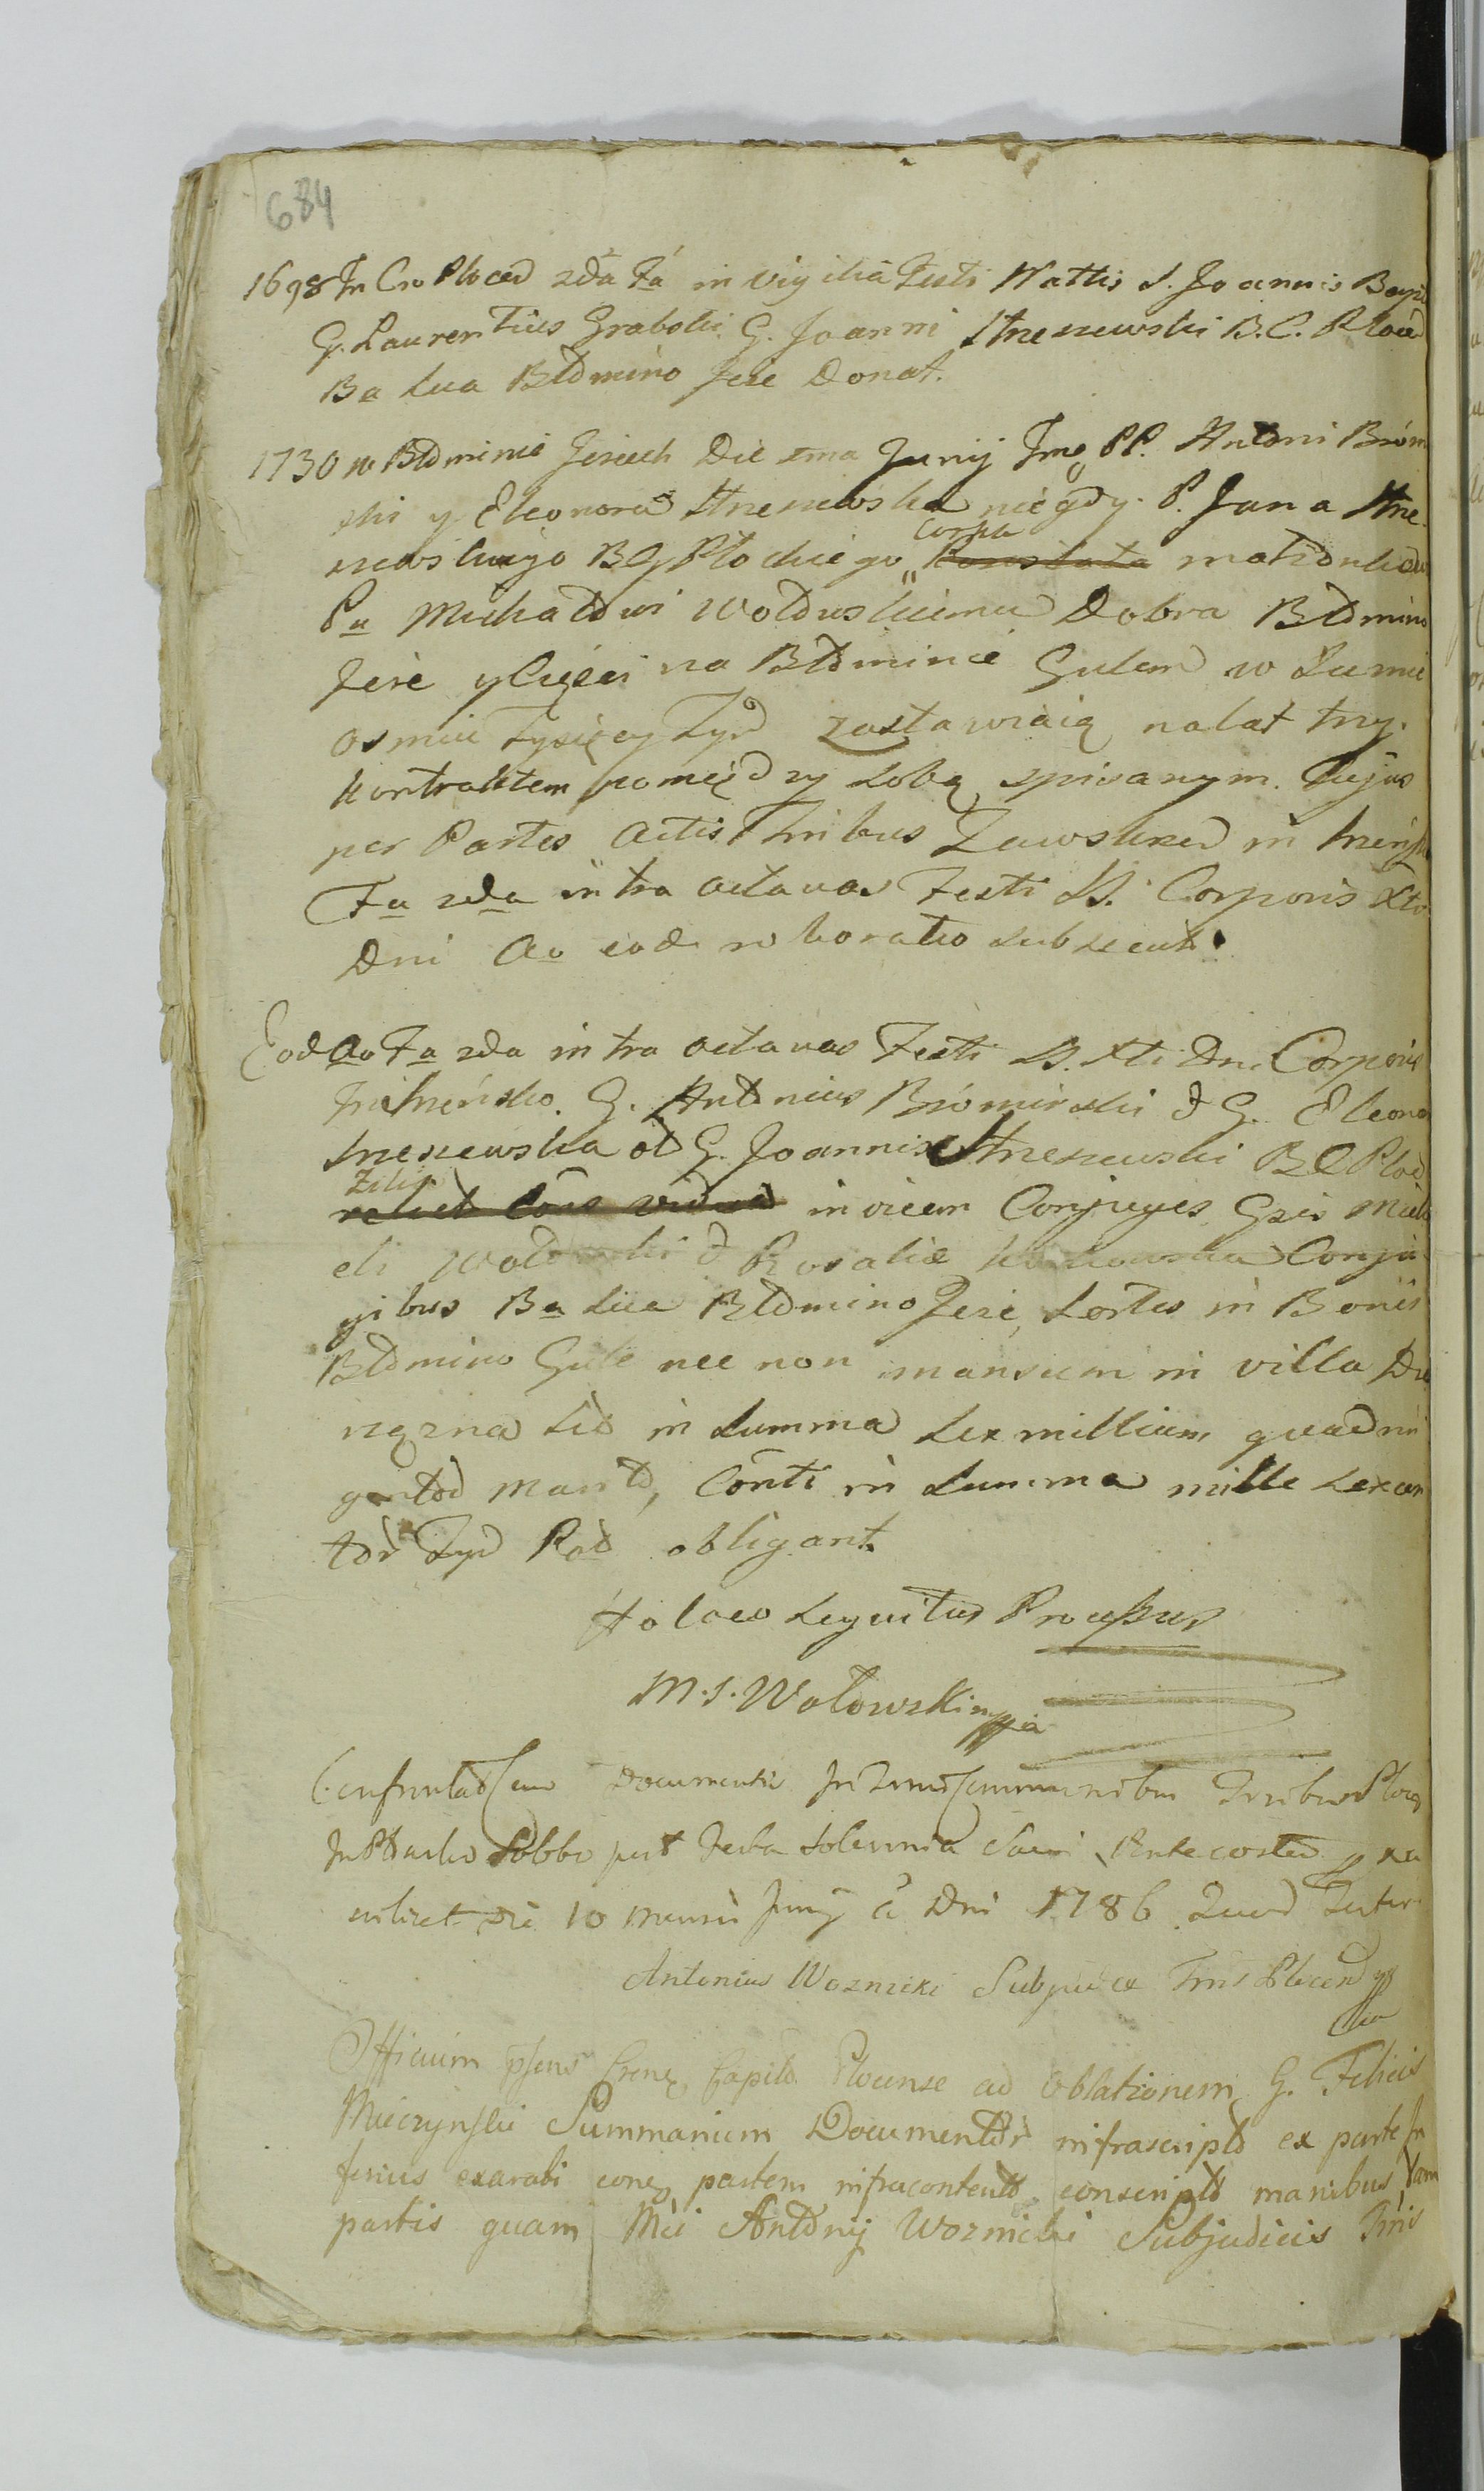 684
1698 In Cro Plocen 2da Fa in vigilia Festi Nattis S. Joannis Bapt
G. Laurentius Grabski G. Joanni Strzeszewski B.C. Plocen
Ba sua Błomino Jeże Donat.
1730 w Błominie Jeżach Die 1ma Junij Jmę PP. Antoni Bróm
ski y Eleonora Strzeszewska niegdy. P. Jana Strze
szewskiego BG Płockiego corka małżonkow
Pu Michałowi Wołowskiemu Dobra Błomino
Jeże y Części na Błominie Gulem w Sumie
osmiu Tysięcy Tyn zastawiaią na lat trzy.
kontraktem pomiędzy sobą spisanym. Cujus
per Partes Actis Tribus Zawskrzen in
Fa 2da intra octavas Festi SS. Corporis Xti
Dni Ao eod roboratio subsecut.
Eod Ao Fa 2da intra octavas Festi SS. Xti Dni Corporis
G. Antonius Brómirski & G. Eleonora
Strzeszewska ol G. Joannis Strzeszewski BC Ploc
Filia
relict Cons vidua invicem Conjuges Gsis Mich
eli Wołowski & Rosaliæ Conju
gibus Ba sua Błomino Jeże, Sortes in Bonis
Błomino Gule nec non mansum in villa Drze
in Summa Sex millium quadrin
gentor Marc, Conti in Summa mille sexcen
tor Tyn Pol obligant.
Ha loco sequitur Processus
M.S. Wołowski mppa
Confrontat cum Documentis In Termis communibus Trribus Ploc
Sabbo post Festa Solennia Sacri Pentecostes
videlicet die 10 mensis Junij A Dni 1786 Quod Testor
Antonius Woznicki Subjudex Trris Plocen
mppa
Officium psens Crense Capitle Plocense ad oblationem G. Felicis
Mieczynski Summarium Documentor infrascript ex parte In
ferius exarati conq partem infracontentor conscript manibus tam
partis quam Mci Antonij Woznicki Subjudicis Trris